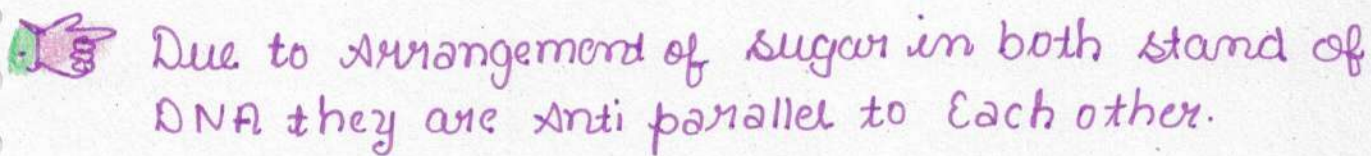 Due to Arrangement of sugar in both stand of
DNA they are Anti parallel to Each other.